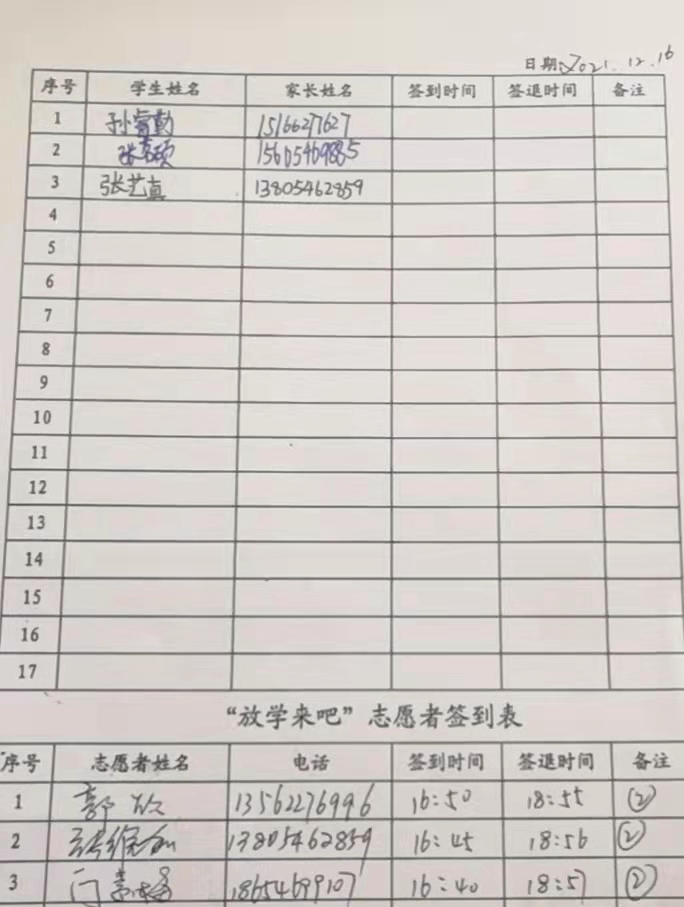 日期 2021.12.16
序号 学生姓名 家长姓名 签到时间 签退时间 备注
1 孙 勤 15166277627
2 15605469885
3 张艺真 13805462859
4
5
6
7
8
9
10
11
12
13
14
15
16
17
“放学来吧”志愿者签到表
序号 志愿者姓名 电话 签到时间 签退时间 备注
1 郭欣 13562276996 16:50 18:55 ②
2 13805462859 16:45 18:56 ②
3 门 18654699107 16:40 18:57 ②